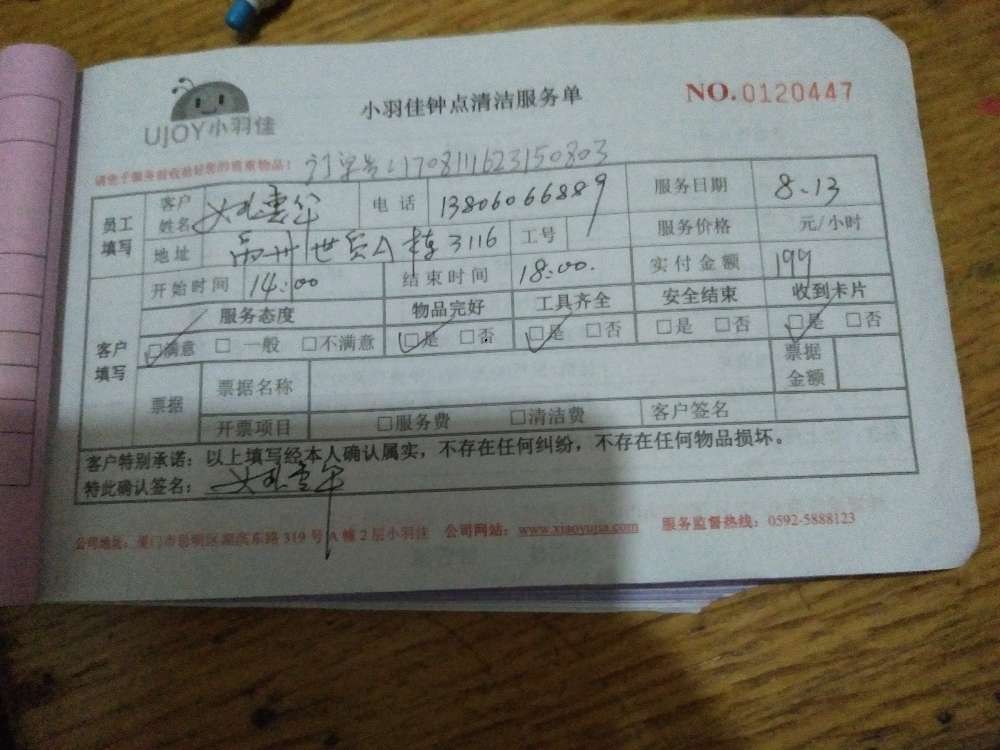 UJOY小羽佳
小羽佳钟点清洁服务单
NO.0120447
请您于服务前收拾好您的贵重物品：
订单号：1708111623150803
员工填写
客户姓名
电话 13806066889
服务日期 8.13
地址 世贸A栋3116
工号
服务价格 元/小时
开始时间 14:00
结束时间 18:00.
实付金额 199
客户填写
服务态度 物品完好 工具齐全 安全结束 收到卡片
□满意 □一般 □不满意 □是 □否 □是 □否 □是 □否 □是 □否
票据 票据名称 票据金额
开票项目 □服务费 □清洁费 客户签名
客户特别承诺：以上填写经本人确认属实，不存在任何纠纷，不存在任何物品损坏。
特此确认签名：
公司地址：厦门市思明区湖滨东路319号A幢2层小羽佳 公司网站：www.xiaoyujia.com 服务监督热线：0592-5888123